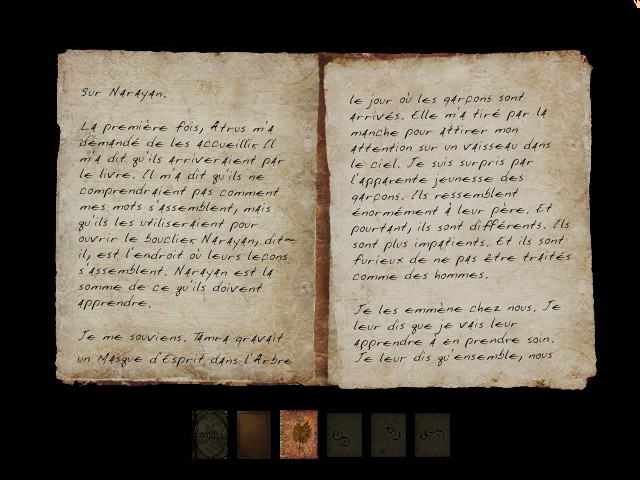 sur Narayan.
La première fois, Atrus m'a
demandé de les accueillir. Il
m'a dit qu'ils arriveraient par
le livre. Il m'a dit qu'ils ne
comprendraient pas comment
mes mots s'assemblent, mais
qu'ils les utiliseraient pour
ouvrir le bouclier. Narayan, dit-
il, est l'endroit où leurs leçons
s'assemblent. Narayan est la
somme de ce qu'ils doivent
apprendre.
Je me souviens. Tamra gravait
un Masque d'Esprit dans l'Arbre
le jour où les garçons sont
arrivés. Elle m'a tiré par la
manche pour attirer mon
attention sur un vaisseau dans
le ciel. Je suis surpris par
l'apparente jeunesse des
garçons. Ils ressemblent
énormément à leur père. Et
pourtant, ils sont différents. Ils
sont plus impatients. Et ils sont
furieux de ne pas être traités
comme des hommes.
Je les emmène chez nous. Je
leur dis que je vais leur
apprendre à en prendre soin.
Je leur dis qu'ensemble, nous